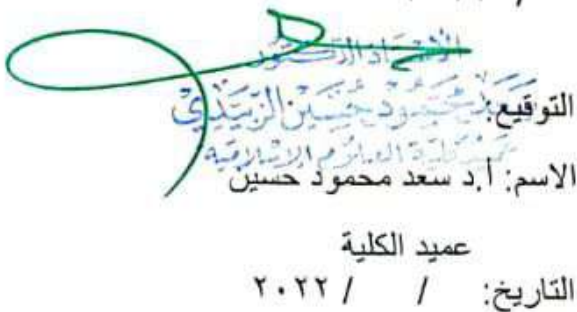 الأستاذ الدكتور
سعد محمود حسين الزبيدي
التوقيع:
عميد كلية العلوم الإسلامية
الاسم: أ.د سعد محمود حسين
عميد الكلية
التاريخ: / / ٢٠٢٢